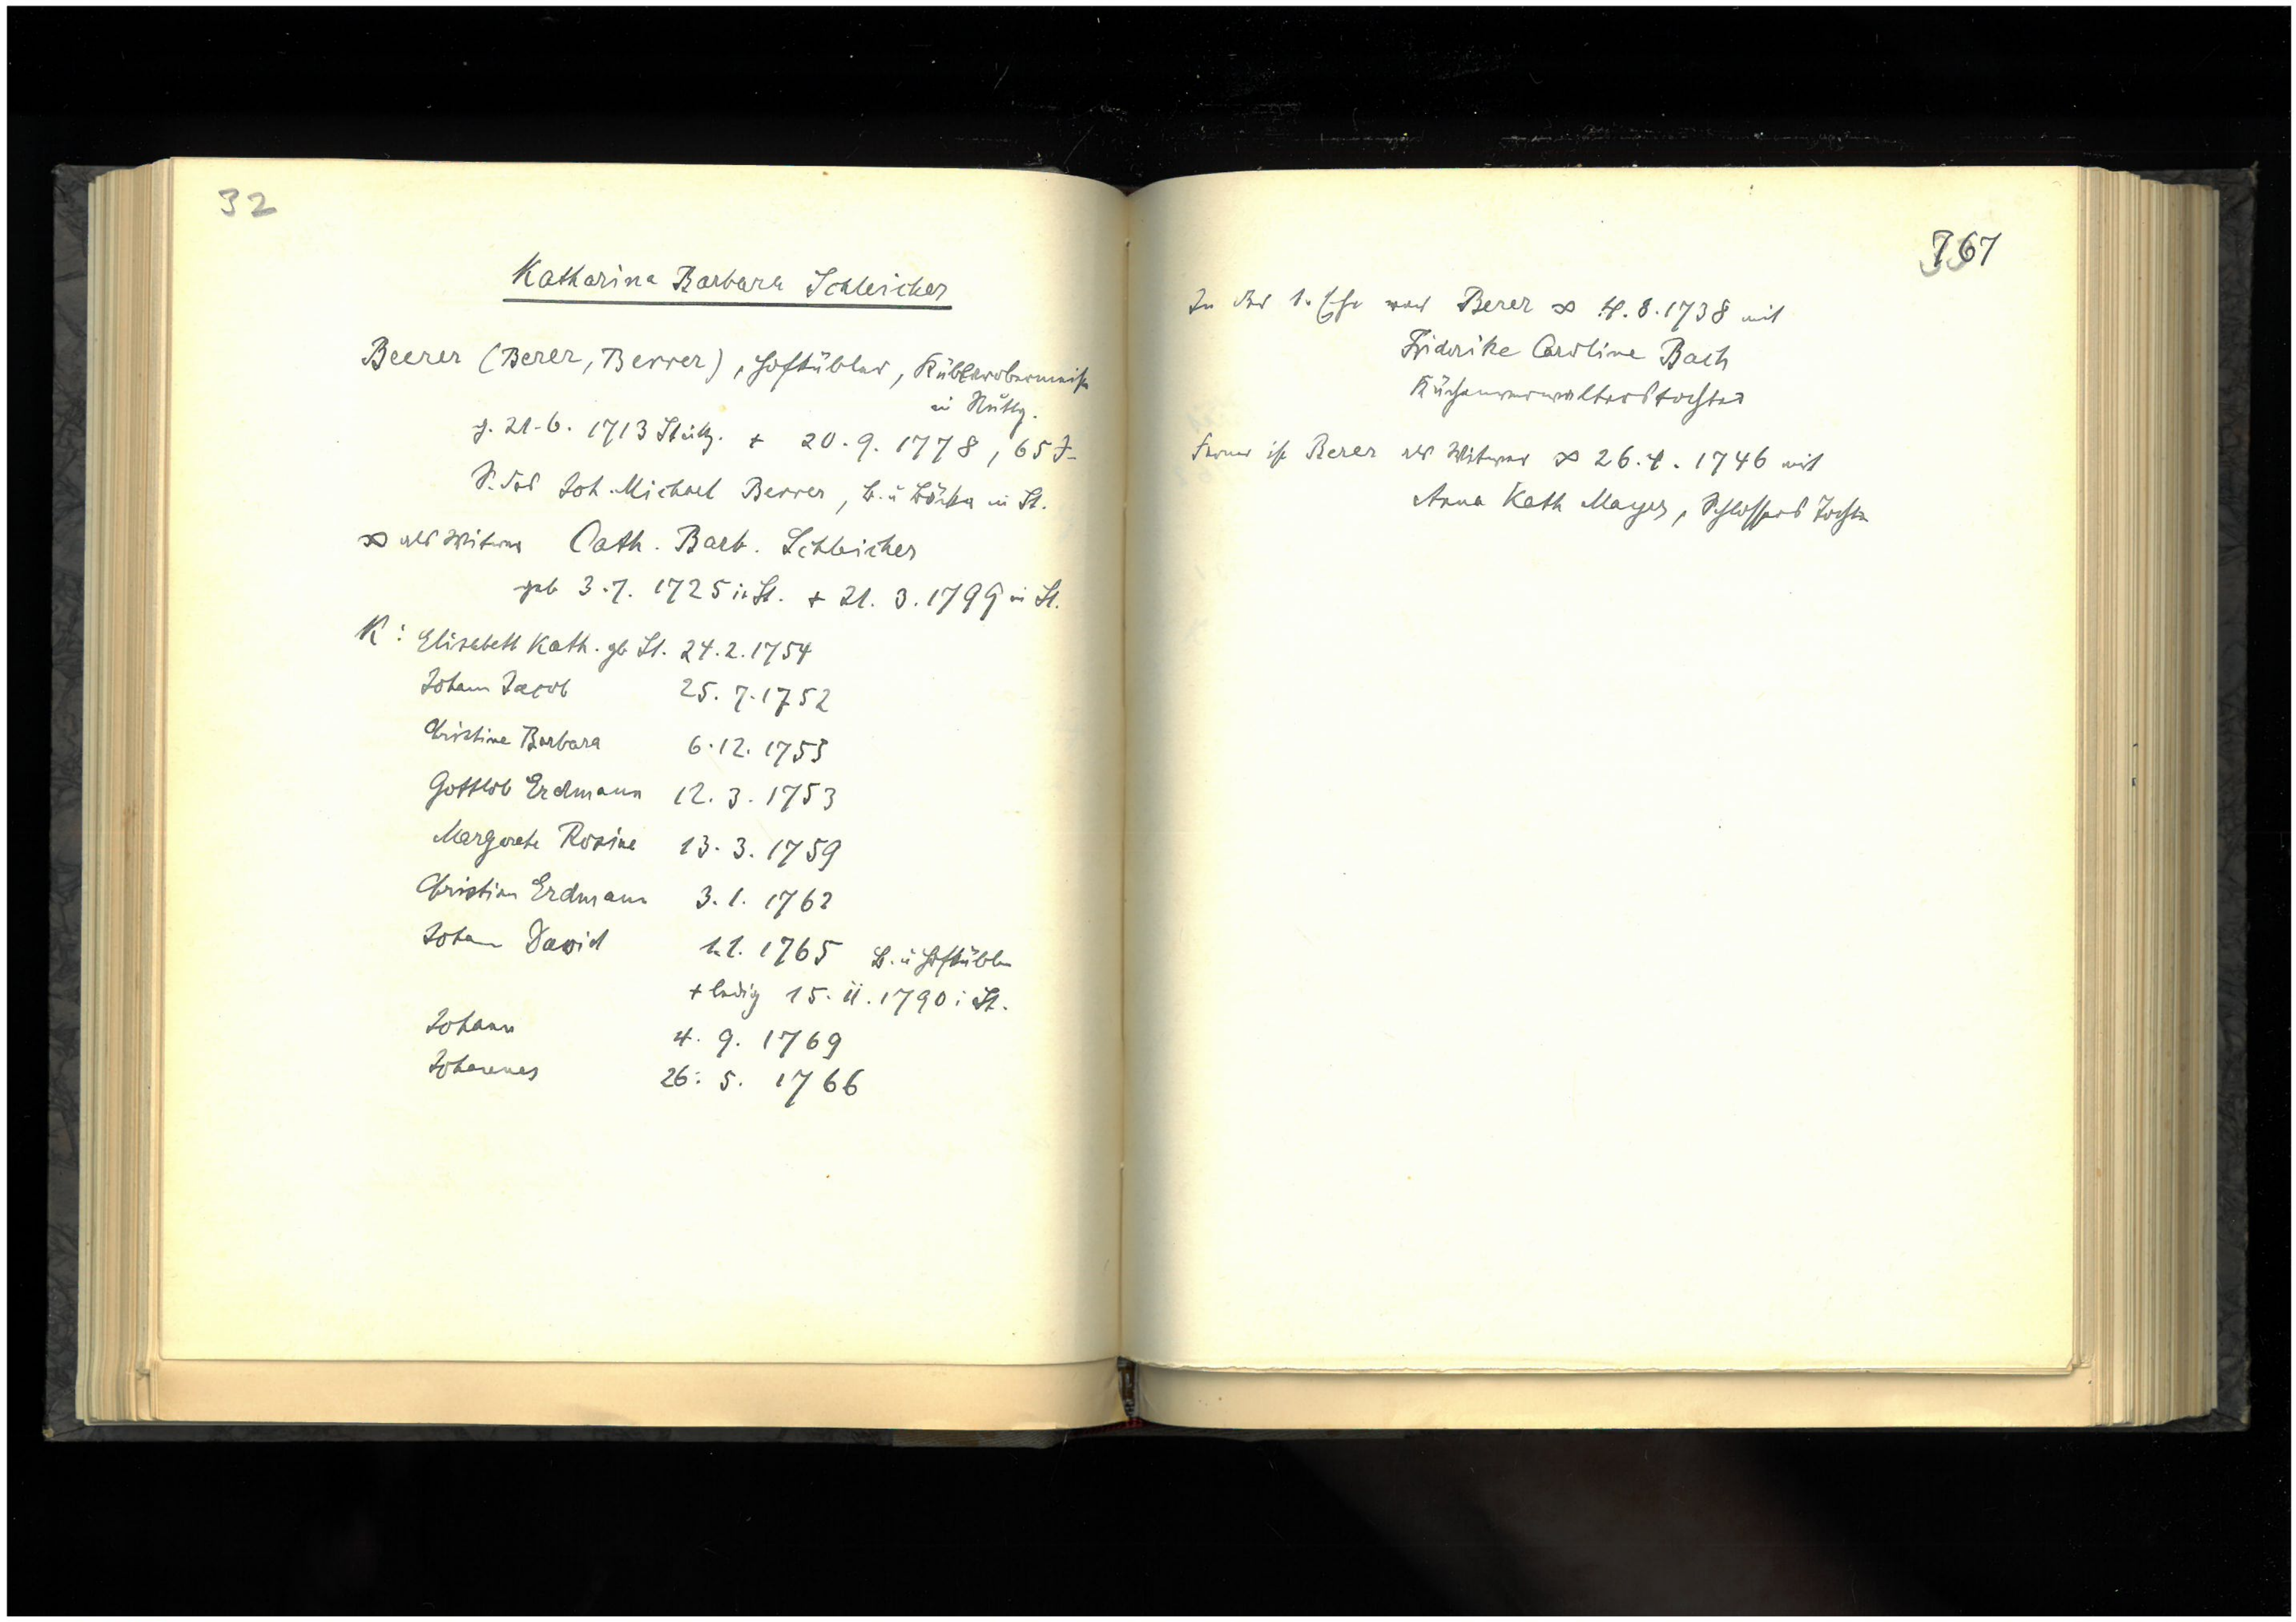 32
Katharina Barbara Schleicher
Beerer (Berer, Berrer), Hofkübler, Küblerobermeister
in Stuttg.
g. 21.6. 1713 Stuttg. + 20.9. 1778, 65 J.
S. des Joh. Michael Berrer, B. u Bäcker in St.
∞ als Witwer Cath. Barb. Schleicher
geb 3.7. 1725 in St. + 21. 3. 1799 in St.
K: Elisabeth Kath. gb St. 24.2.1754
Johann Jacob 25. 7. 1752
Christine Barbara 6.12. 1753
Gottlob Erdmann 12. 3. 1753
Margarete Rosine 13. 3. 1759
Christian Erdmann 3. 1. 1762
Johann David 1.1. 1765 B. u Hofkübler
+ ledig 15. 11. 1790 i St.
Johann 4. 9. 1769
Johannes 26. 5. 1766
767
In der 1. Ehe war Berer ∞ 4. 8. 1738 mit
Friderike Caroline Bach
Küchenverwalterstochter
Ferner ist Berer als Witwer ∞ 26. 4. 1746 mit
Anna Kath Mayer, Schlossers Tochter